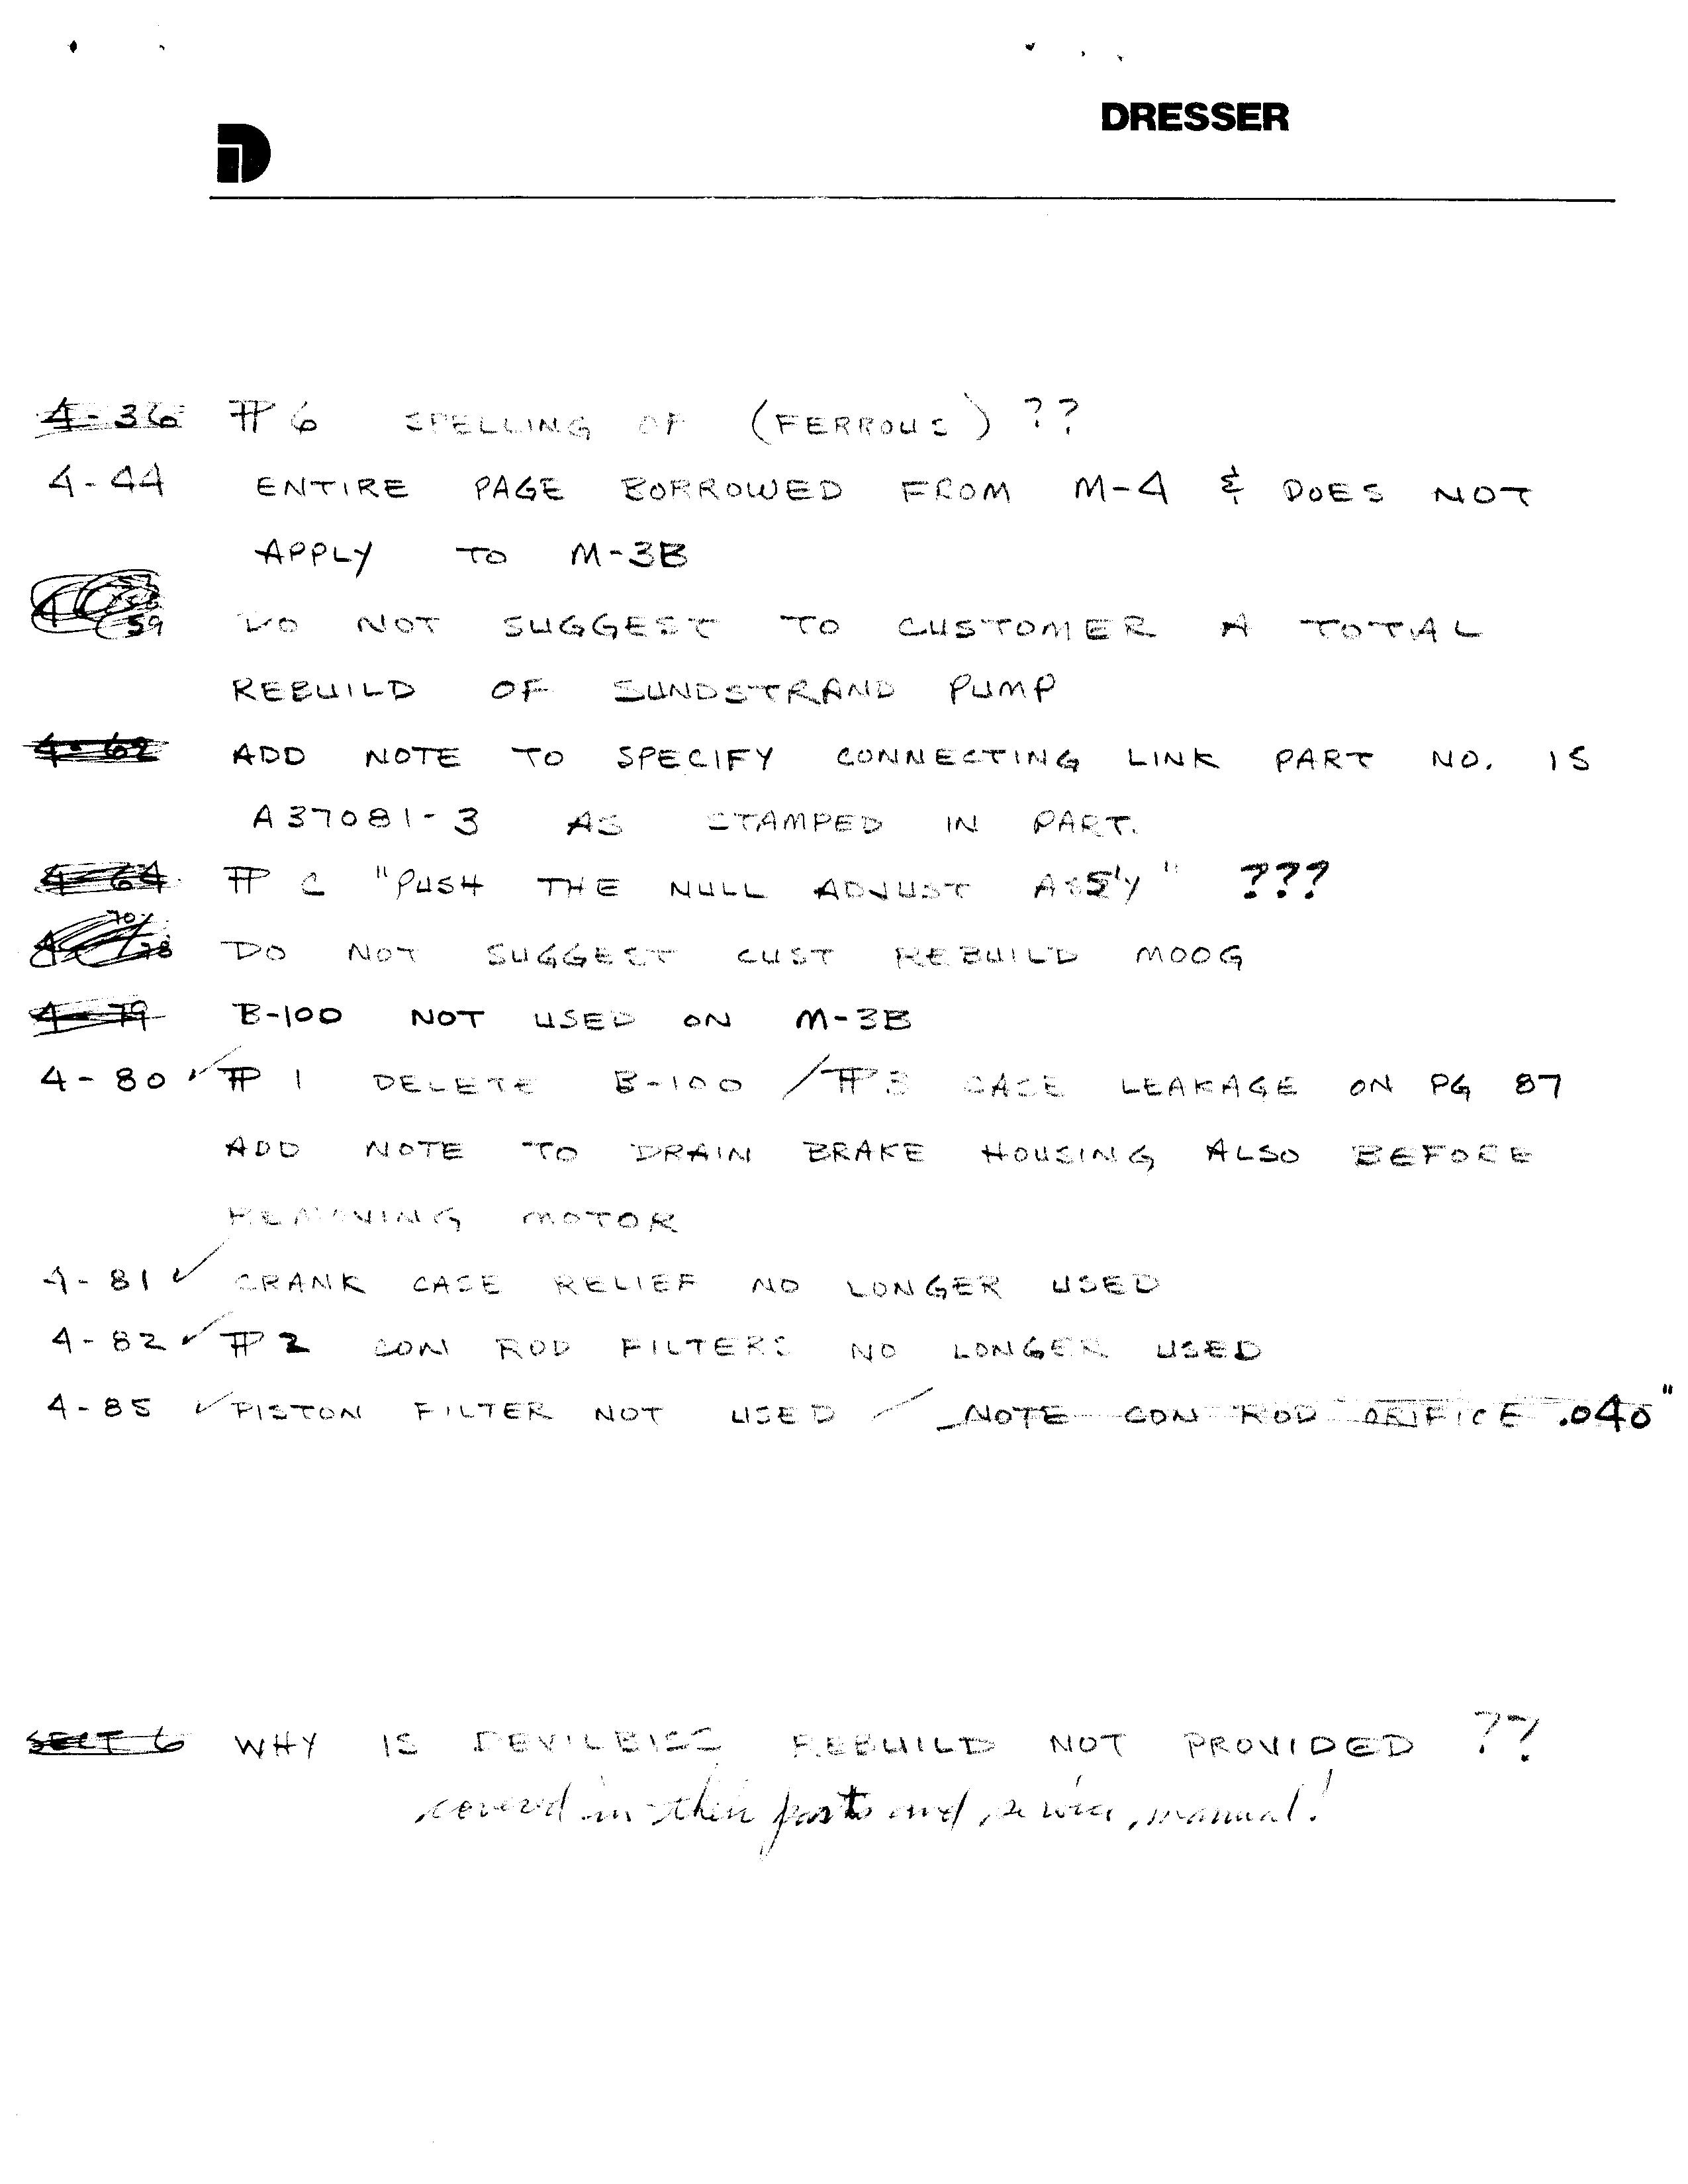 DRESSER
4-36 ¶ 6 SPELLING OF (FERROUS) ??
4-44 ENTIRE PAGE BORROWED FROM M-4 & DOES NOT
APPLY TO M-3B
59 DO NOT SUGGEST TO CUSTOMER A TOTAL
REBUILD OF SUNDSTRAND PUMP
4-62 ADD NOTE TO SPECIFY CONNECTING LINK PART NO. IS
A37081-3 AS STAMPED IN PART.
4-64 ¶ C "PUSH THE NULL ADJUST ASS'Y" ???
4-70/78 DO NOT SUGGEST CUST REBUILD MOOG
4-79 B-100 NOT USED ON M-3B
4-80 ✓ ¶ 1 DELETE B-100 / ¶ 3 CASE LEAKAGE ON PG 87
ADD NOTE TO DRAIN BRAKE HOUSING ALSO BEFORE
REMOVING MOTOR
4-81 ✓ CRANK CASE RELIEF NO LONGER USED
4-82 ✓ ¶ 2 CON ROD FILTERS NO LONGER USED
4-85 ✓ PISTON FILTER NOT USED / NOTE CON ROD ORIFICE .040"
SECT 6 WHY IS DEVILBISS REBUILD NOT PROVIDED ??
covered in their parts and service manual!